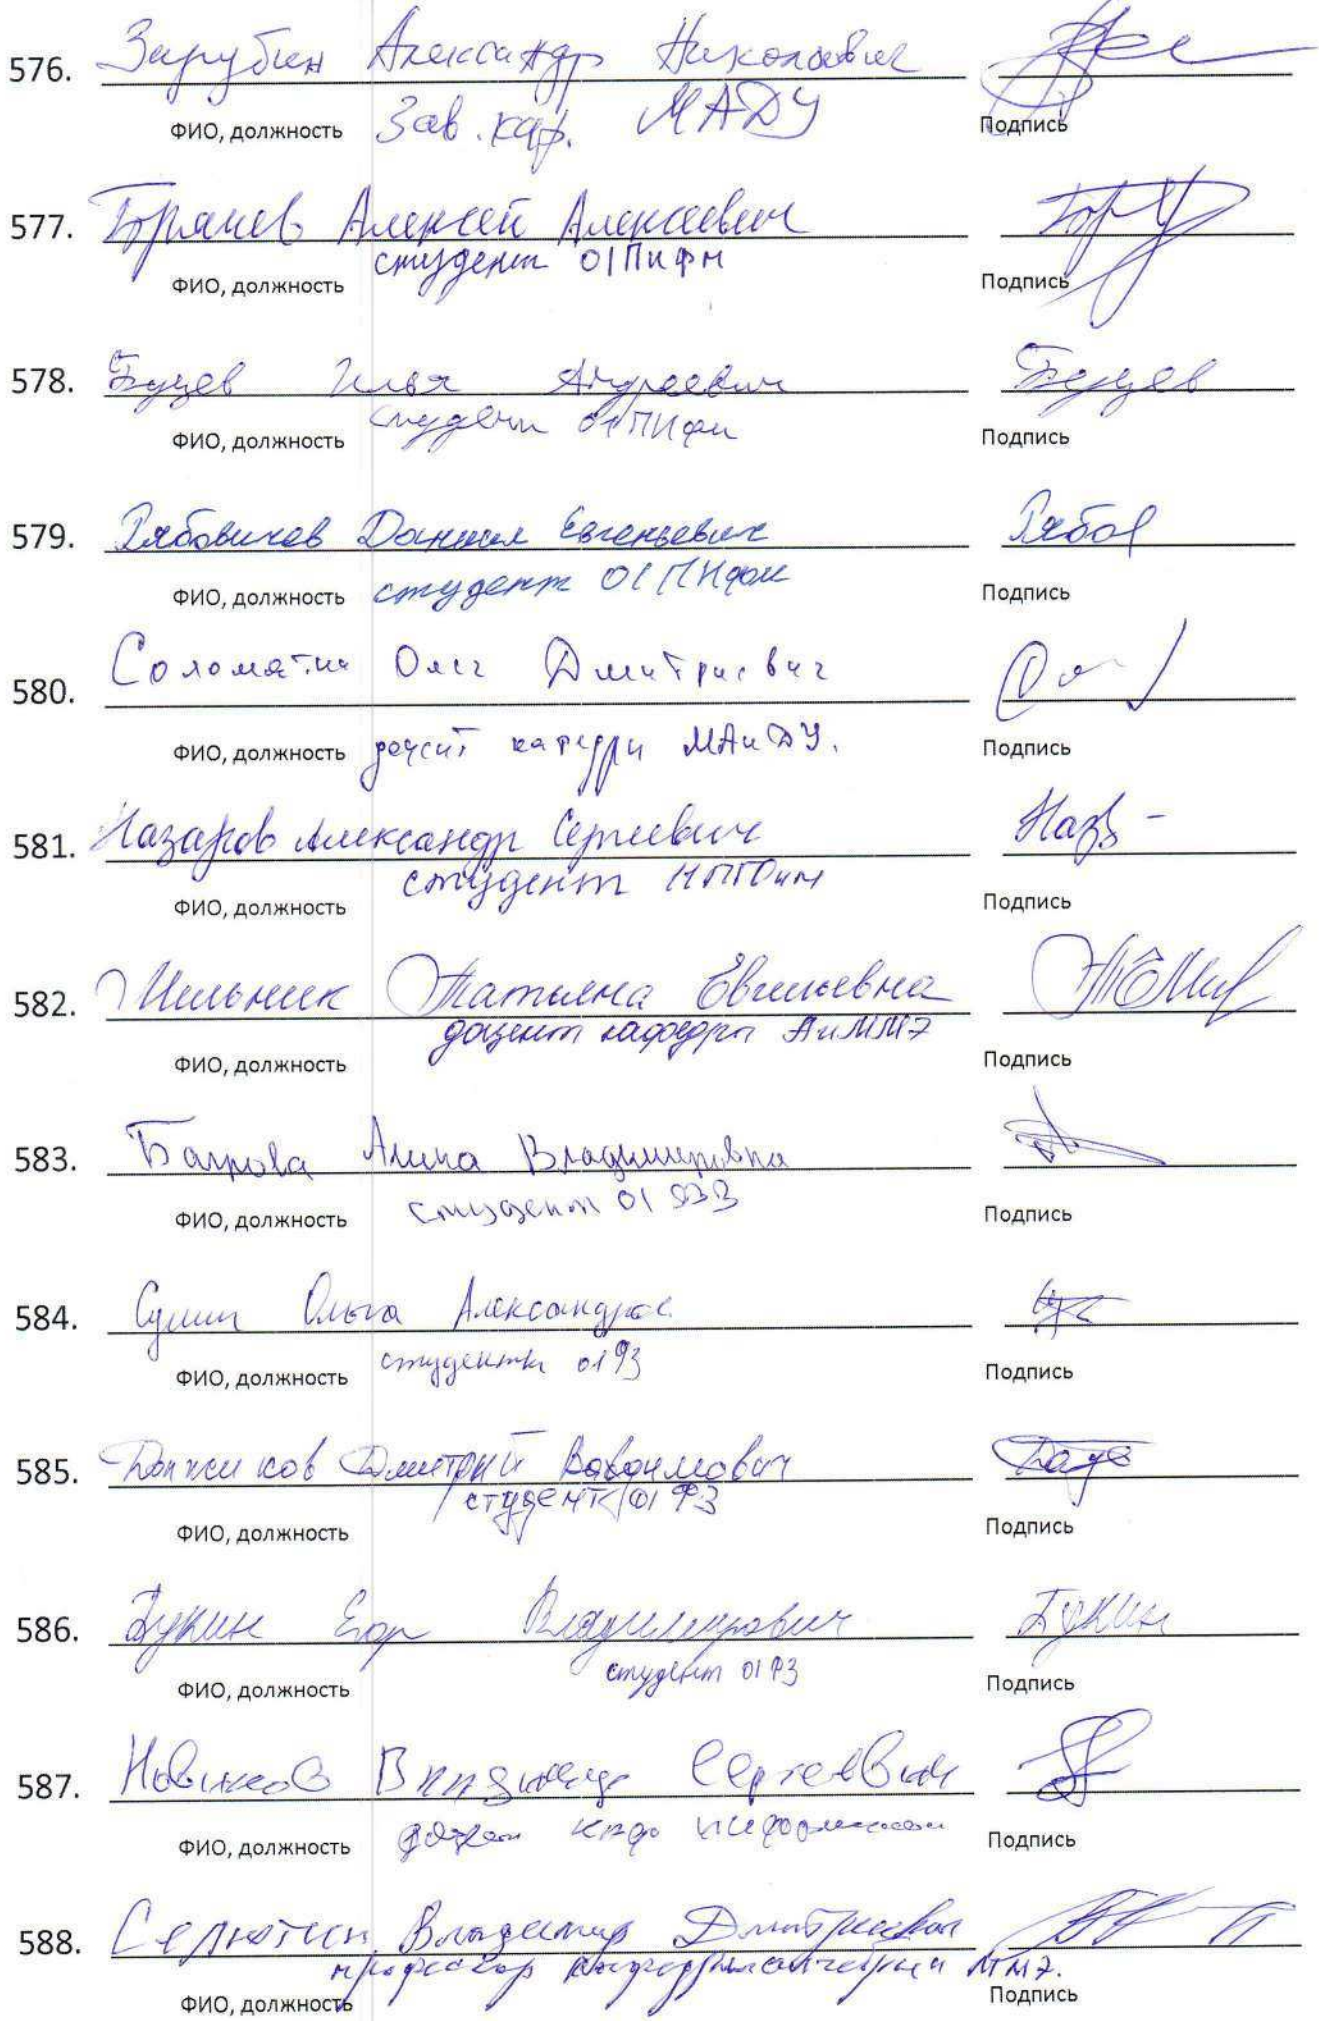 576. Зарубин Александр Николаевич
ФИО, должность Зав. каф. МАДУ Подпись
577. Алексей Алексеевич
студент 01ПИФМ
ФИО, должность Подпись
578. Буцев Илья Андреевич Буцев
студент 01ПИфм
ФИО, должность Подпись
579. Рябовичев Даниил Евгеньевич Рябов
ФИО, должность студент 01ПИфм Подпись
580. Соломатин Олег Дмитриевич
ФИО, должность доцент кафедры МАиДУ. Подпись
581. Назаров Александр Сергеевич Наз
студент
ФИО, должность Подпись
582. Мельник Татьяна Евгеньевна
доцент кафедры АиММЭ
ФИО, должность Подпись
583. Алина Владимировна
студент 01
ФИО, должность Подпись
584. Ольга Александров.
ФИО, должность студентка 01ФЗ Подпись
585. Дмитрий
студент 01ФЗ
ФИО, должность Подпись
586. Букин Егор Владимирович Букин
студент 01ФЗ
ФИО, должность Подпись
587. Новиков Владимир Сергеевич
ФИО, должность доцент каф информатики Подпись
588. Селютин Владимир Дмитриевич
профессор кафедры
ФИО, должность Подпись